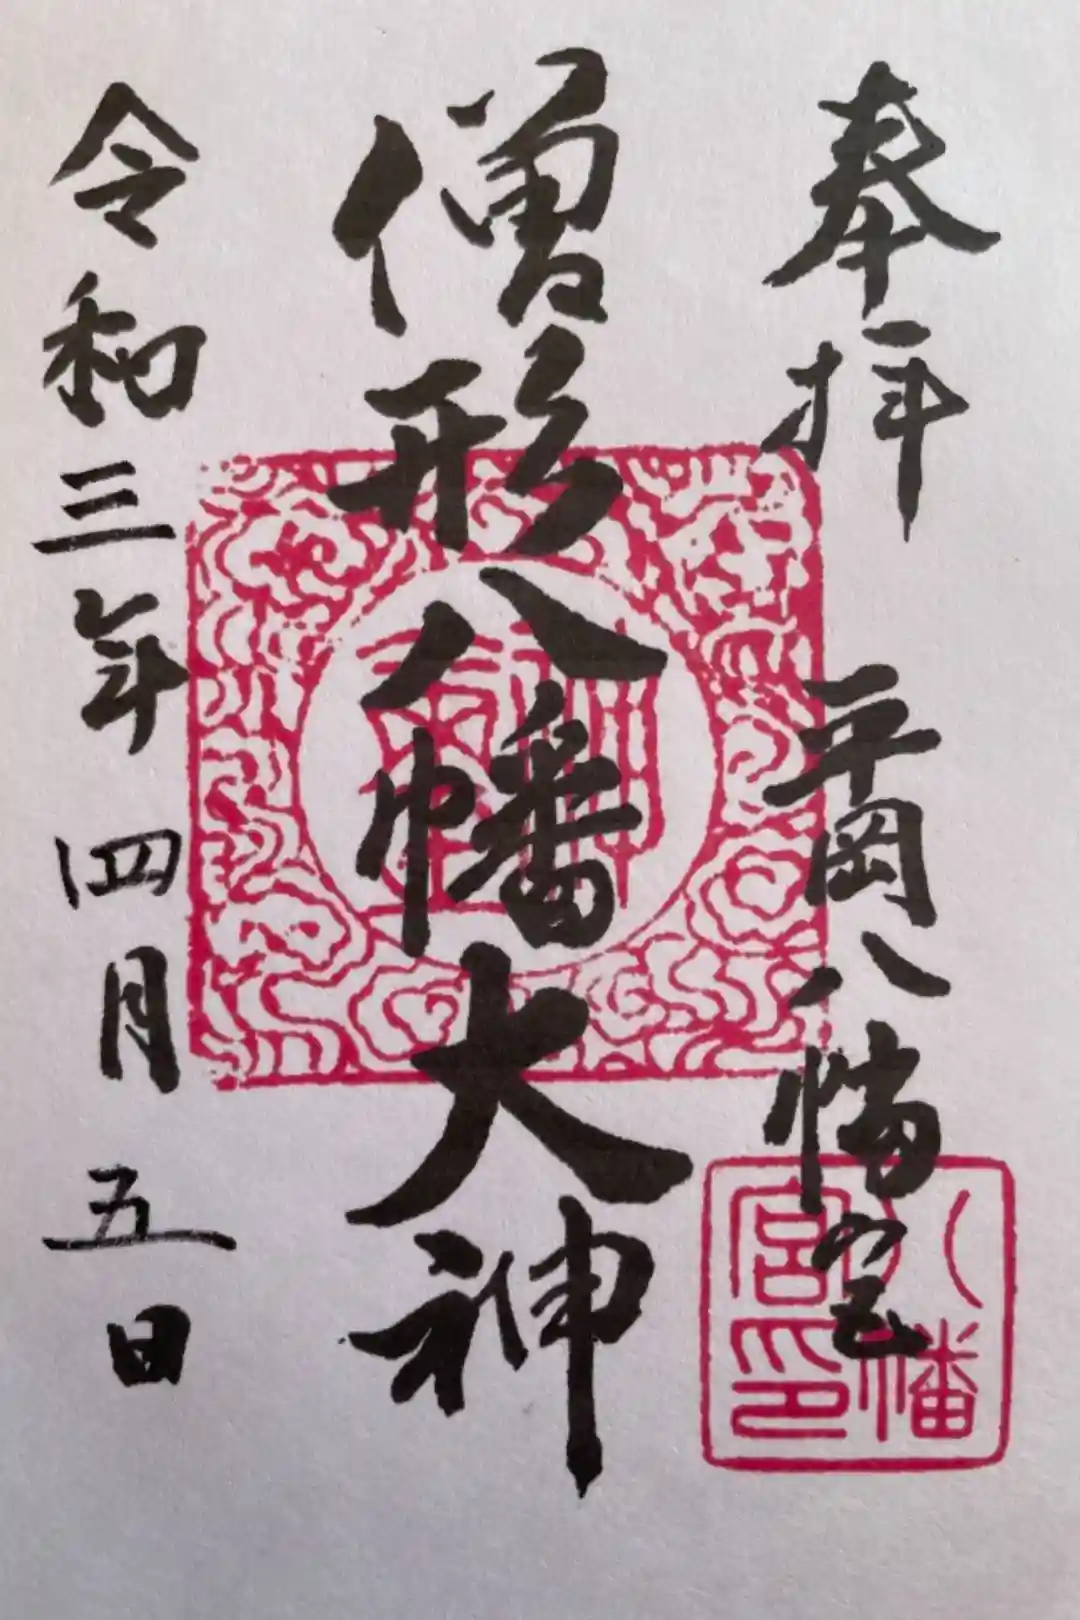 奉拝 平岡八幡宮
僧形八幡大神
令和三年四月五日
八幡
宮印